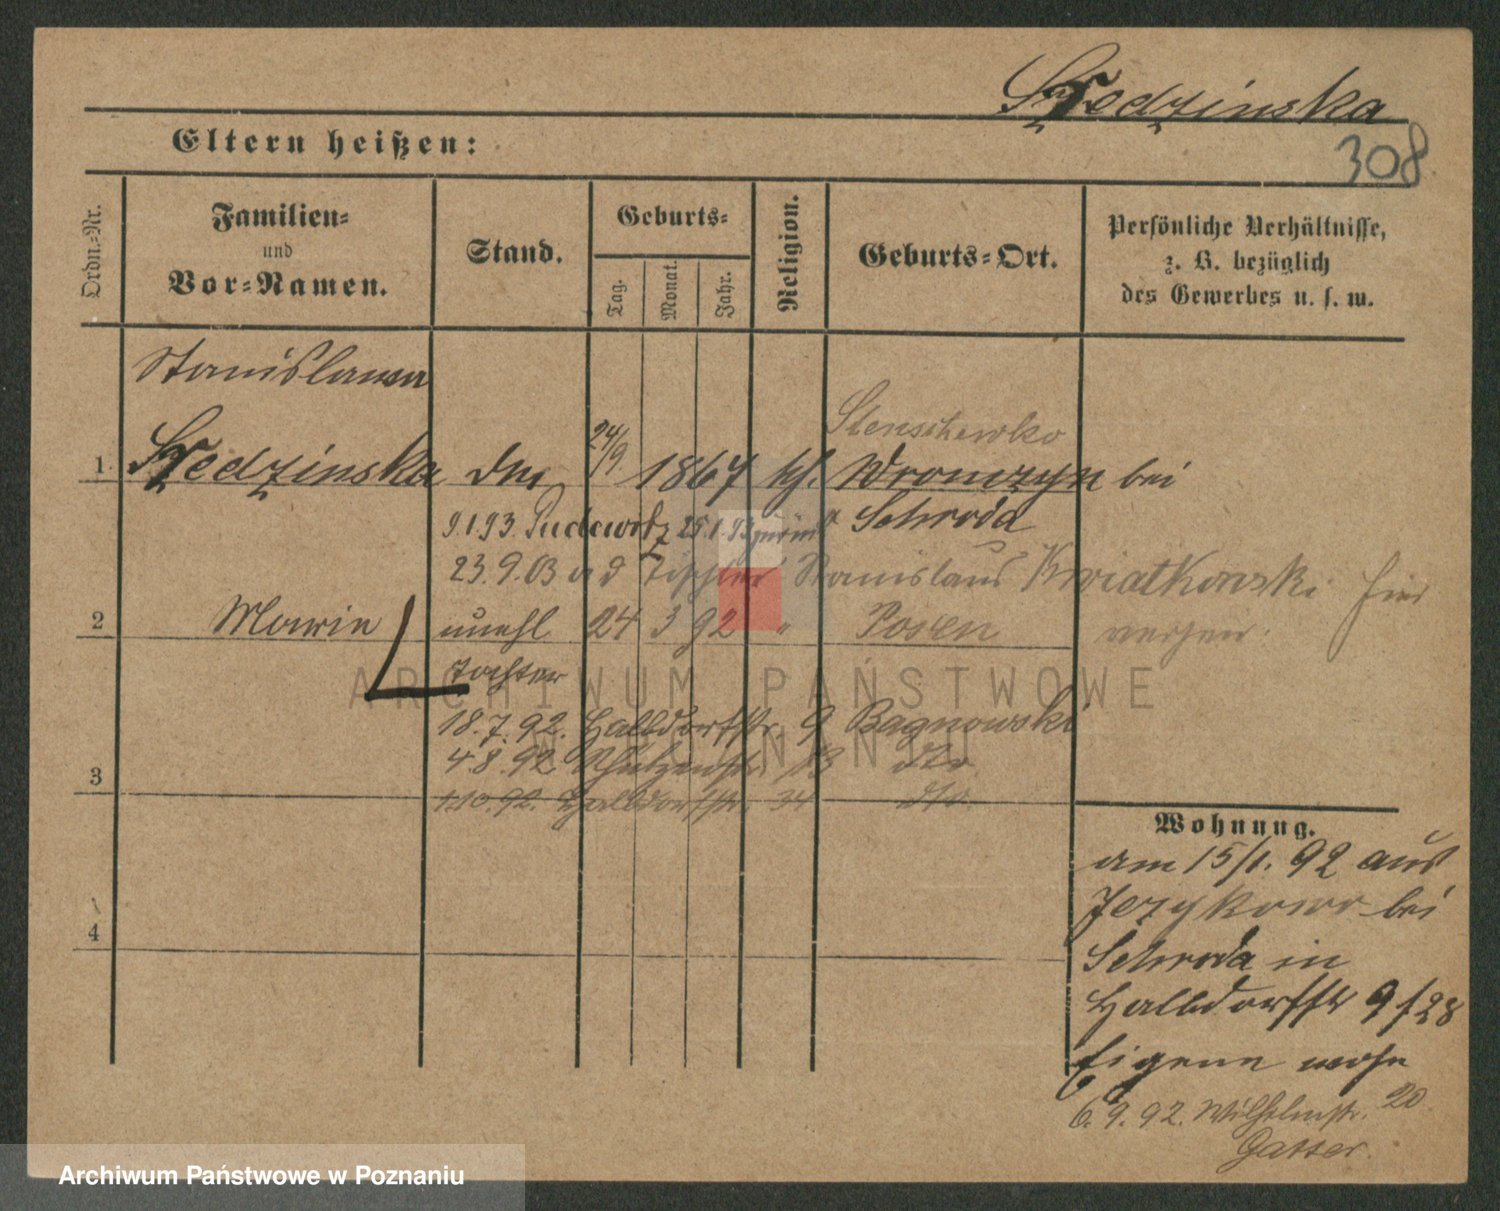 Szredzinska
308
Eltern heißen:
Ordn.-Nr.
Familien-
und
Vor-Namen.
Stand.
Geburts-
Tag.
Monat.
Jahr.
Religion.
Geburts-Ort.
Persönliche Verhältnisse,
z. B. bezüglich
des Gewerbes u. s. w.
Stanislawa
Stenschewko
1. Szredzinska 24/9. 1867 kh. Wronczyn bei
Schroda
9.1.93. Pudewitz 25.1.93 zurück
23.9.03 Tischler Stanislaus Kwiatkowski hier
2 Marie unehl 24 3 92 " Posen
Tochter
18.7.92. Halbdorfstr. 9 Bagnowski
4.8.92 Schützenstr. 13 dto
3
1.10.92. Halbdorfstr. 34 dto.
4
Wohnung.
am 15/1. 92 aus
Jerzykowo bei
Schroda in
Halbdorfstr 9 f 28
Eigene wohn
6.9.92. Wilhelmstr. 20
Gasser.
ARCHIWUM PAŃSTWOWE
W POZNANIU
Archiwum Państwowe w Poznaniu